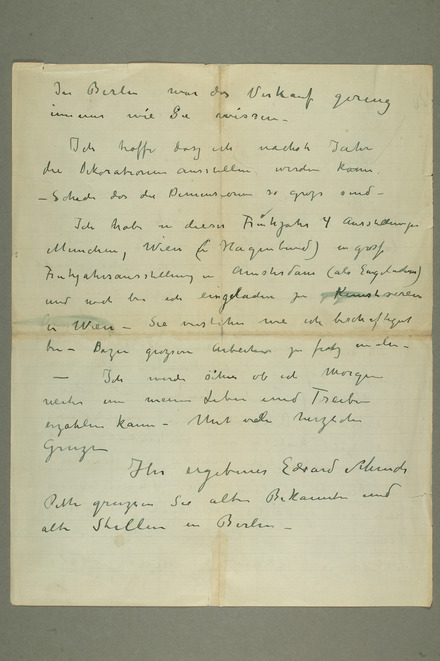 In Berlin war der Verkauf gering
immer wie Sie wissen –
Ich hoffe dasz ich nächste Jahr
die Dekorationen ausstellen werden kann.
– Schade das die Dimensionen so grosz sind –
Ich habe in dieses Frühjahr 4 Ausstellungen
München, Wien (in Hagenbund) in
Frühjahrsausstellung in Amsterdam (als Eingeladen)
und noch bin ich eingeladen zu Kunstverein
in Wien – Sie verstehen wie ich beschäftiget
bin –
– Ich werde sehen ob ich Morgen
weiter um meinen Leben und Treiben
erzählen kann – Mit viele herzlichen
Grüszen
Ihr ergebenes Edvard Munch
Bitte grüszen Sie alten Bekannten und
alte Stellen in Berlin –